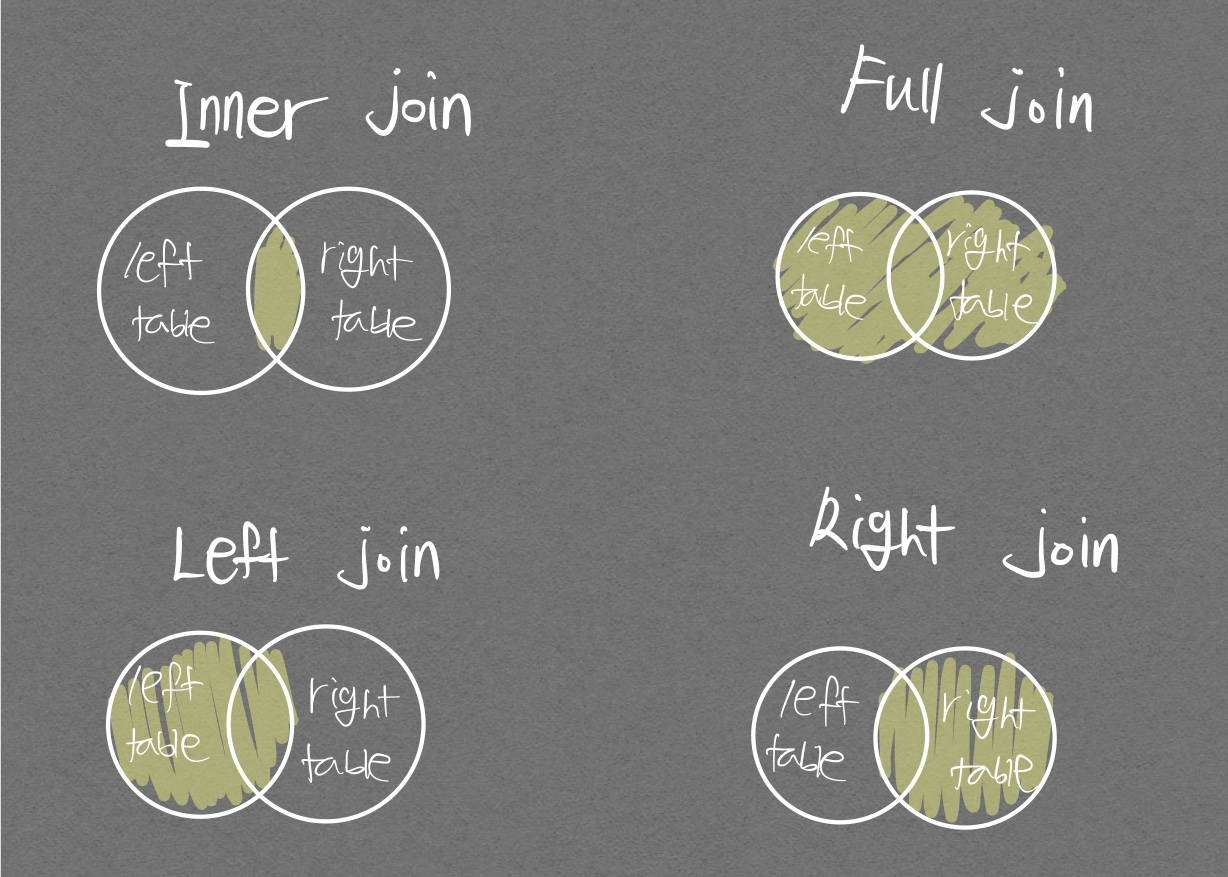 Inner join
left
table
right
table
Full join
left
table
right
table
Left join
left
table
right
table
Right join
left
table
right
table